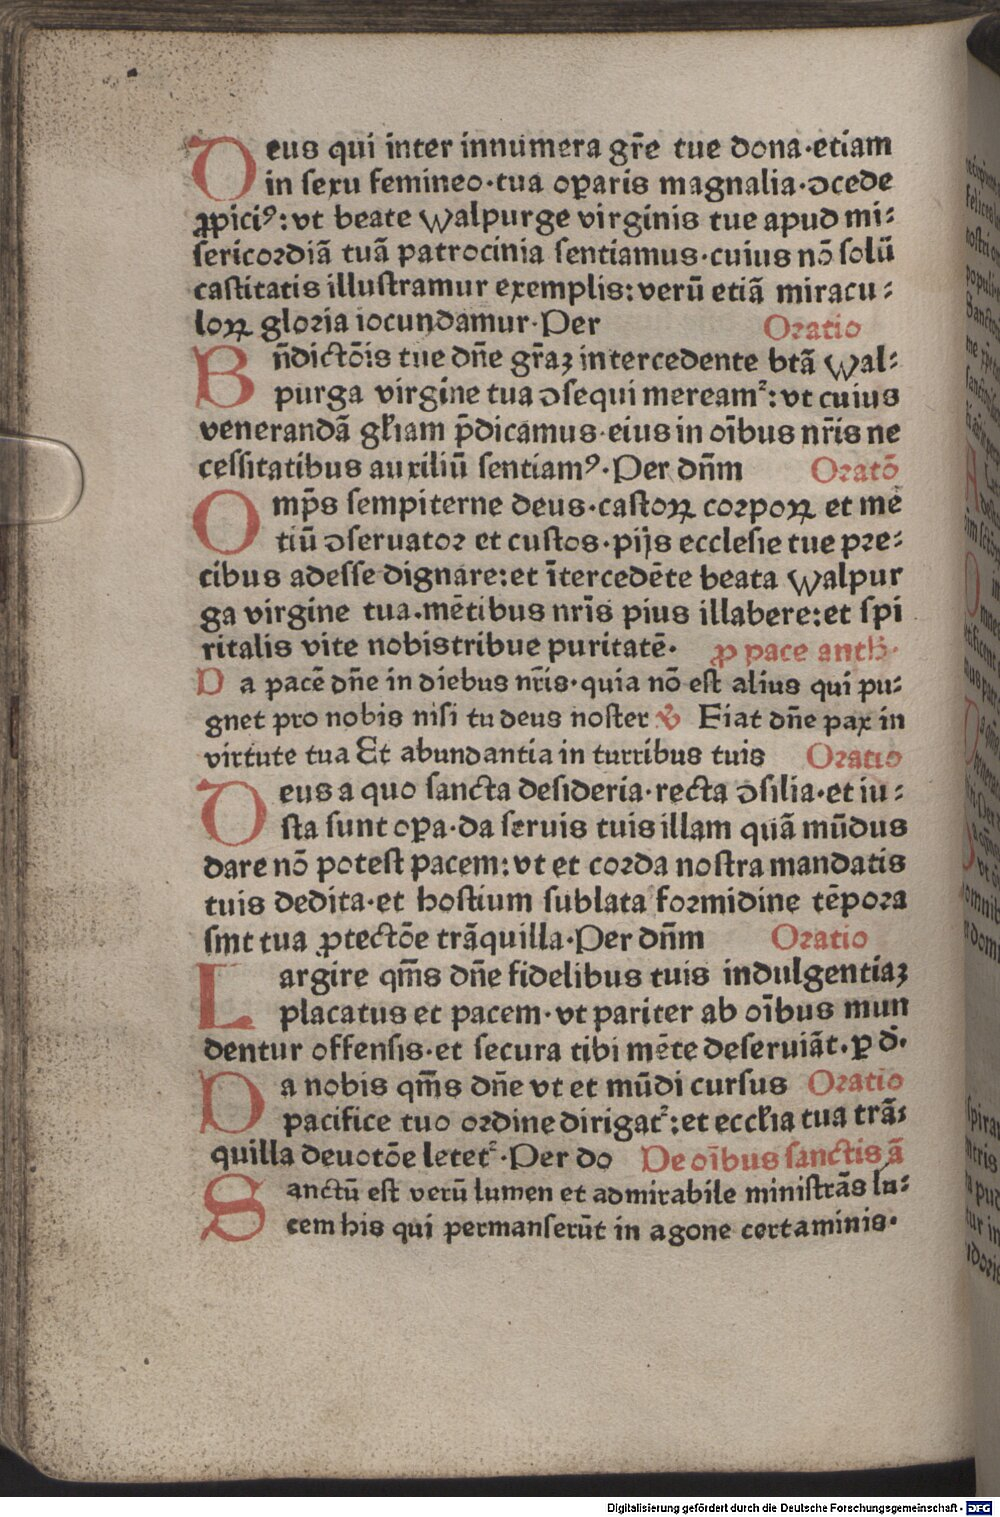 Deus qui inter innumera gr̄e tue dona·etiam
in sexu femineo·tua oꝑaris magnalia·ↄcede
ꝓpiciꝰ:vt beate walpurge virginis tue apud mi:
sericordiā tuā patrocinia sentiamus·cuius nō solū
castitatis illustramur exemplis:verū etiā miracu:
loꝝ gloria iocundamur·Per Oratio
Bn̄dictōis tue dn̄e gr̄aꝫ intercedente btā wal:
purga virgine tua ↄsequi mereamᷣ:vt cuius
venerandā gl̄iam p̄dicamus·eius in oībus nr̄is ne
cessitatibus auxiliū sentiamꝰ·Per dn̄m Oratō
Omp̄s sempiterne deus·castoꝝ corpoꝝ et mē
tiū ↄseruator et custos·pijs ecclesie tue pre:
cibus adesse dignare:et ītercedēte beata walpur
ga virgine tua·mētibus nrīs pius illabere:et spi
ritalis vite nobis tribue puritatē· ꝓ pace anth̄·
Da pacē dn̄e in diebus nr̄is·quia nō est alius qui pu:
gnet pro nobis nisi tu deus noster ℣ Fiat dn̄e pax in
virtute tua Et abundantia in turribus tuis Oratio
Deus a quo sancta desideria·recta ↄsilia·et iu:
sta sunt oꝑa·da seruis tuis illam quā mūdus
dare nō potest pacem:vt et corda nostra mandatis
tuis dedita·et hostium sublata formidine tēpora
sint tua ꝓtectōe trāquilla·Per dn̄m Oratio
Largire qm̄s dn̄e fidelibus tuis indulgentiaꝫ
placatus et pacem·vt pariter ab oībus mun
dentur offensis·et secura tibi mēte deseruiāt·ꝑ d̄·
Da nobis qm̄s dn̄e vt et mūdi cursus Oratio
pacifice tuo ordine dirigatᷣ:et eccl̄ia tua trā:
quilla deuotōe letetᷣ·Per do De oībus sanctis ā
Sanctū est verū lumen et admirabile ministrās lu:
cem his qui permanserūt in agone certaminis·
Digitalisierung gefördert durch die Deutsche Forschungsgemeinschaft - DFG